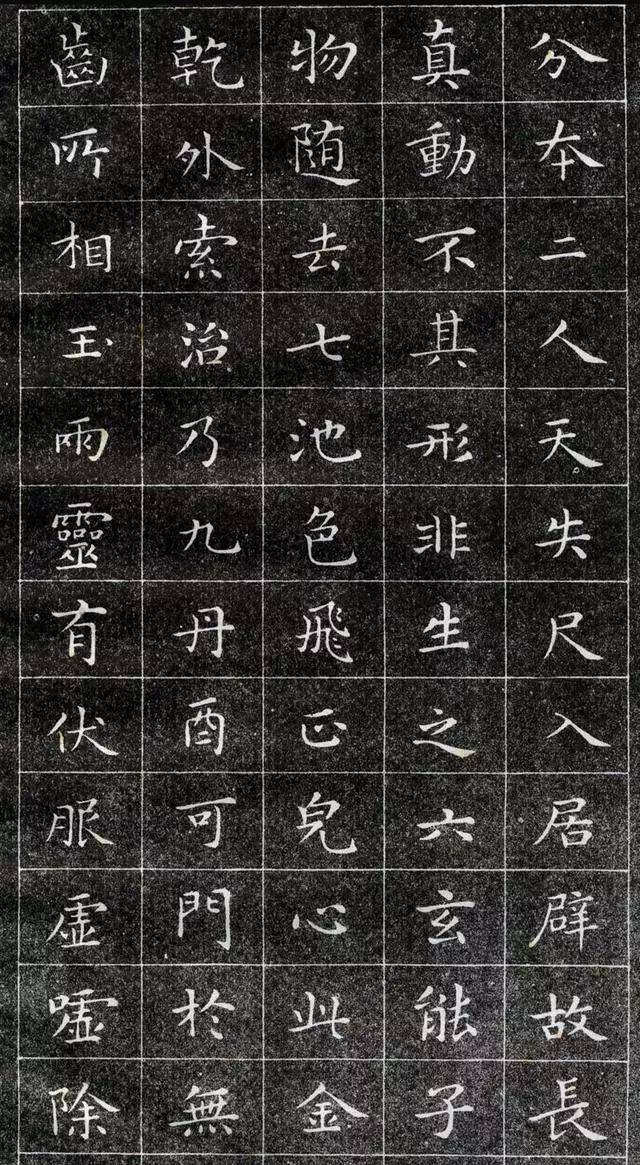 分本二人天失尺入居辟故長
真動不其形非生之六玄能子
物随去七池色飛正皃心此金
乾外索治乃九丹酉可門於無
齒所相玉雨靈有伏服虛嘘除